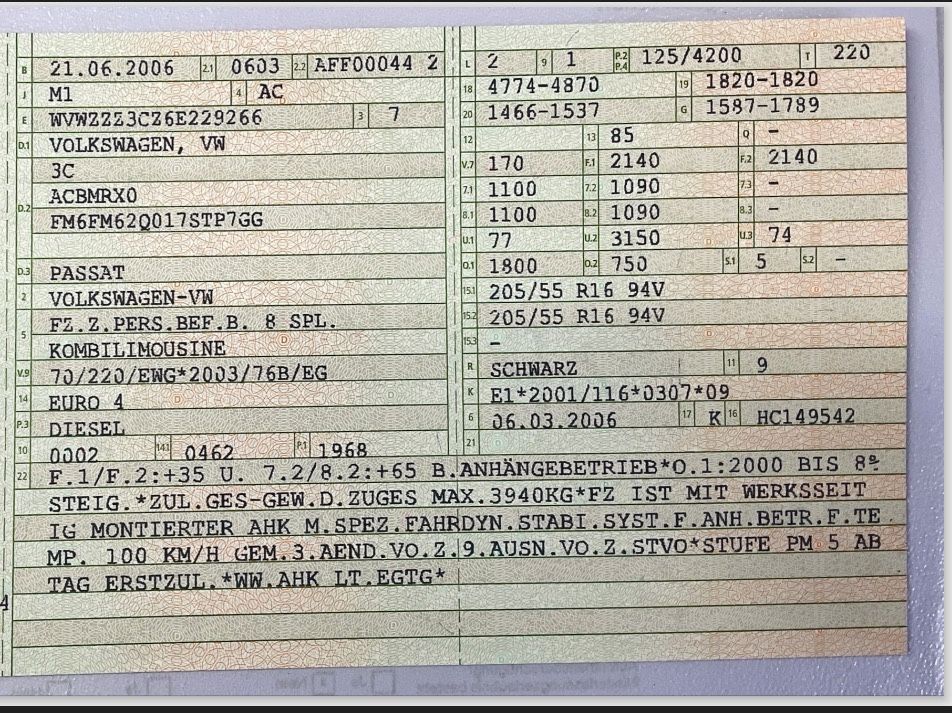 B 21.06.2006 2.1 0603 2.2 AFF00044 2
J M1 4 AC
E WVWZZZ3CZ6E229266 3 7
D.1 VOLKSWAGEN, VW
3C
D.2 ACBMRX0
FM6FM62Q017STP7GG
D.3 PASSAT
2 VOLKSWAGEN-VW
5 FZ.Z.PERS.BEF.B. 8 SPL.
KOMBILIMOUSINE
V.9 70/220/EWG*2003/76B/EG
14 EURO 4
P.3 DIESEL
10 0002 14.1 0462 P.1 1968
L 2 9 1 P.2 P.4 125/4200 T 220
18 4774-4870 19 1820-1820
20 1466-1537 G 1587-1789
12 13 85 Q -
V.7 170 F.1 2140 F.2 2140
7.1 1100 7.2 1090 7.3 -
8.1 1100 8.2 1090 8.3 -
U.1 77 U.2 3150 U.3 74
O.1 1800 O.2 750 S.1 5 S.2 -
15.1 205/55 R16 94V
15.2 205/55 R16 94V
15.3 -
R SCHWARZ 11 9
K E1*2001/116*0307*09
6 06.03.2006 17 K 16 HC149542
21
22 F.1/F.2:+35 U. 7.2/8.2:+65 B.ANHÄNGEBETRIEB*O.1:2000 BIS 8%
STEIG.*ZUL.GES-GEW.D.ZUGES MAX.3940KG*FZ IST MIT WERKSSEIT
IG MONTIERTER AHK M.SPEZ.FAHRDYN.STABI.SYST.F.ANH.BETR.F.TE
MP. 100 KM/H GEM.3.AEND.VO.Z.9.AUSN.VO.Z.STVO*STUFE PM 5 AB
TAG ERSTZUL.*WW.AHK LT.EGTG*
4